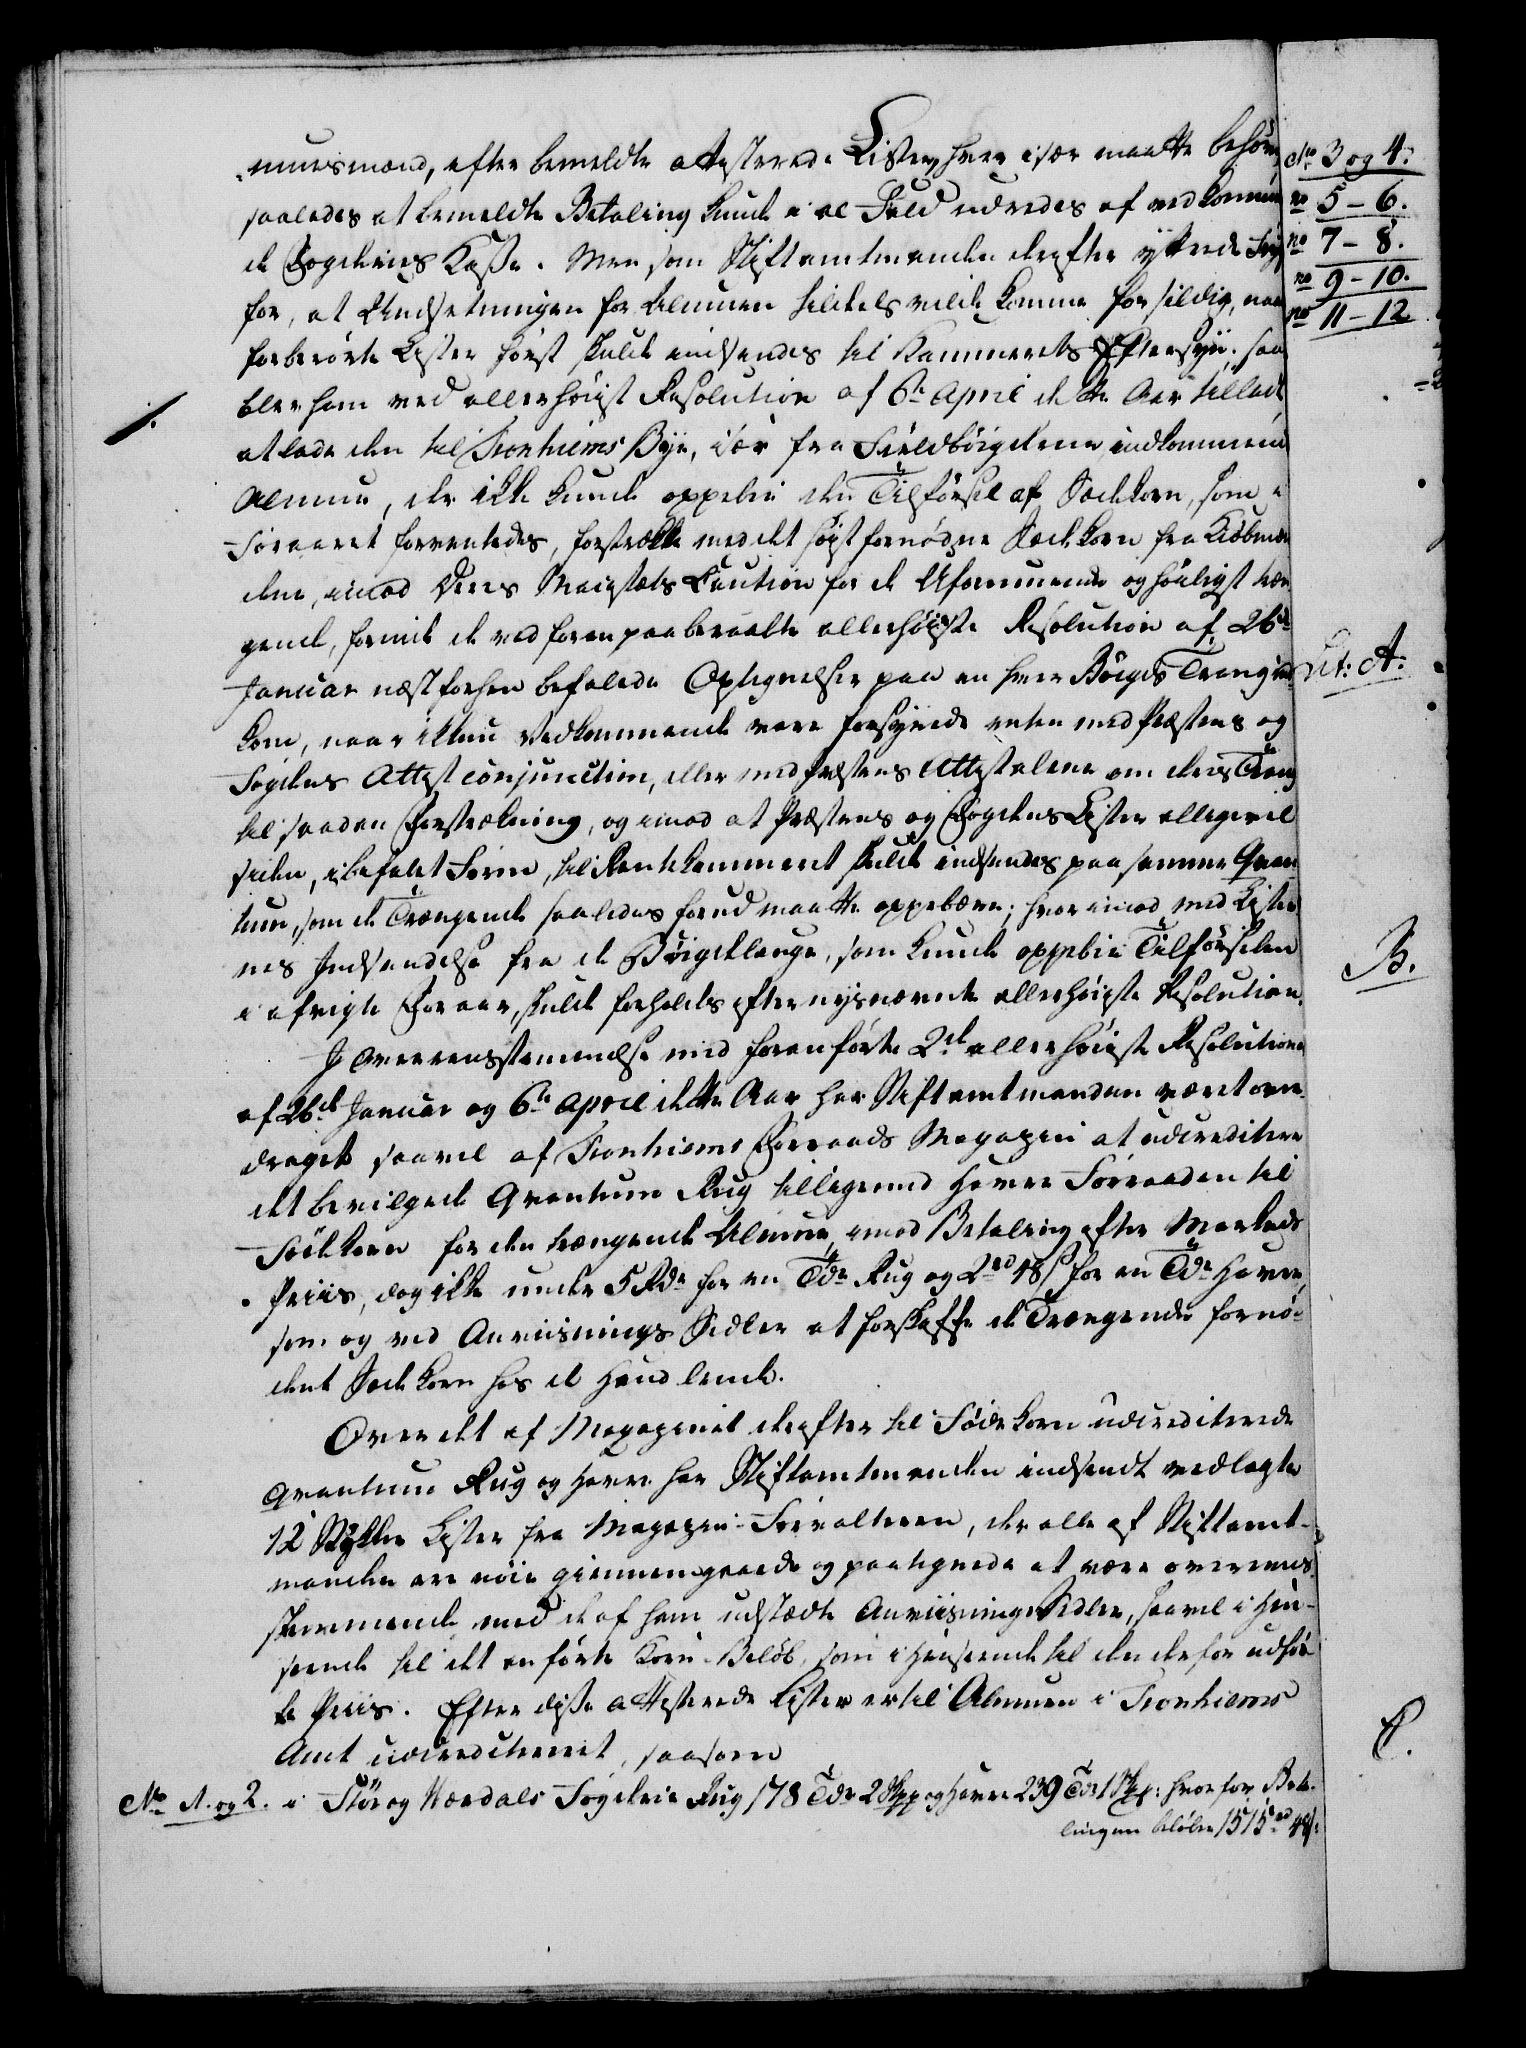 muesmænd, efter bemeldte attesterede Lister, hver især maatte behøve,
saaledes at bemeldte Betaling kunde i al Fald udredes af vedkommen
de Fogderies Kasse. Men som Stiftamtmanden derefter yttrede Frygt
for, at Undsætningen for Almuen tildels vilde komme for sildig, naar
forberørte Lister først skulde indsendes til Kammerets Eftersyn: saa
blev ham ved allerhøiest Resolution af 6te April dette Aar tilladt
at lade den til Tronhiems Bye, især fra Fieldbøigderne indkommende
Almue, der ikke kunde oppebie den Tilførsel af Sædekorn, som i
Foraaret forventedes, forstrække med det høist fornødne Sædekorn fra Kiøbmæn
dene, imod Deres Majestæts Caution for de Uformuende og høiligst træn
gende, formedelst de ved foranpaaberaabte allerhøieste Resolution af 26de
Januar næstforhen befalede Optegnelser paa en hver Bøigds Trang ind
kom, naar ikkun Vedkommende vare forsynede enten med Præstens og
Fogdens Attest conjunctim, eller med Præstens Attest alene om deres Trang
til saadan Forstrækning, og imod at Præstens og Fogdens Lister alligevel
siden, i befalet Form, til Rentekammeret skulde indsendes paa samme Qvan
tum, som de Trængende saaledes forud maatte oppebære; hvorimod med Lister
nes Indsendelse fra de Bøigdelauge, som kunde oppebie Tilførselen
i afvigte Foraar, skulde forholdes efter nysnævnte allerhøieste Resolution.
I Overeensstemmelse med foranførte 2de allerhøieste Resolutioner
af 26de Januar og 6te April dette Aar har Stiftamtmanden været over
draget saavel af Tronhiems Forraads Magazin at udcreditere
det bevilgede Qvantum Rug tilligemed Havre Forraaden til
Fødekorn for den trængende Almue, imod Betaling efter Markeds
Priis, dog ikke under 5 Rdr for en Tde Rug og 2rd 48s for en Tde Havre,
som og ved Anviisnings Sedler at forskaffe de Trængende fornø-
dent Sædekorn hos de Handlende.
Over det af Magazinet derefter til Fødekorn udcrediterede
Qvantum Rug og Havre har Stiftamtmanden indsendt vedlagte
12 Stykker Lister fra Magazin-Forvalteren, der alle af Stiftamt-
manden ere nøie giennemgaaede og paategnede at være overeens
stemmende med de af ham udstædte Anviisnings Sedler, saavel i Hen-
seende til det anførte Korn-Beløb, som i Henseende til den derfor udfør
te Priis. Efter disse attesterede Lister er til Almuen i Tronhiems
Amt udcrediteret, saasom
No 1. og 2. i Stør og Værdals Fogderie Rug 178 Tdr 2 Skpp og Havre 239 Tdr 1 Skp: hvorfor Beta-
lingen beløber 1515rd 48s.
No 3 og 4.
no 5 - 6.
no 7 - 8.
no 9 - 10.
no 11 - 12
Lit: A.
B.
C.